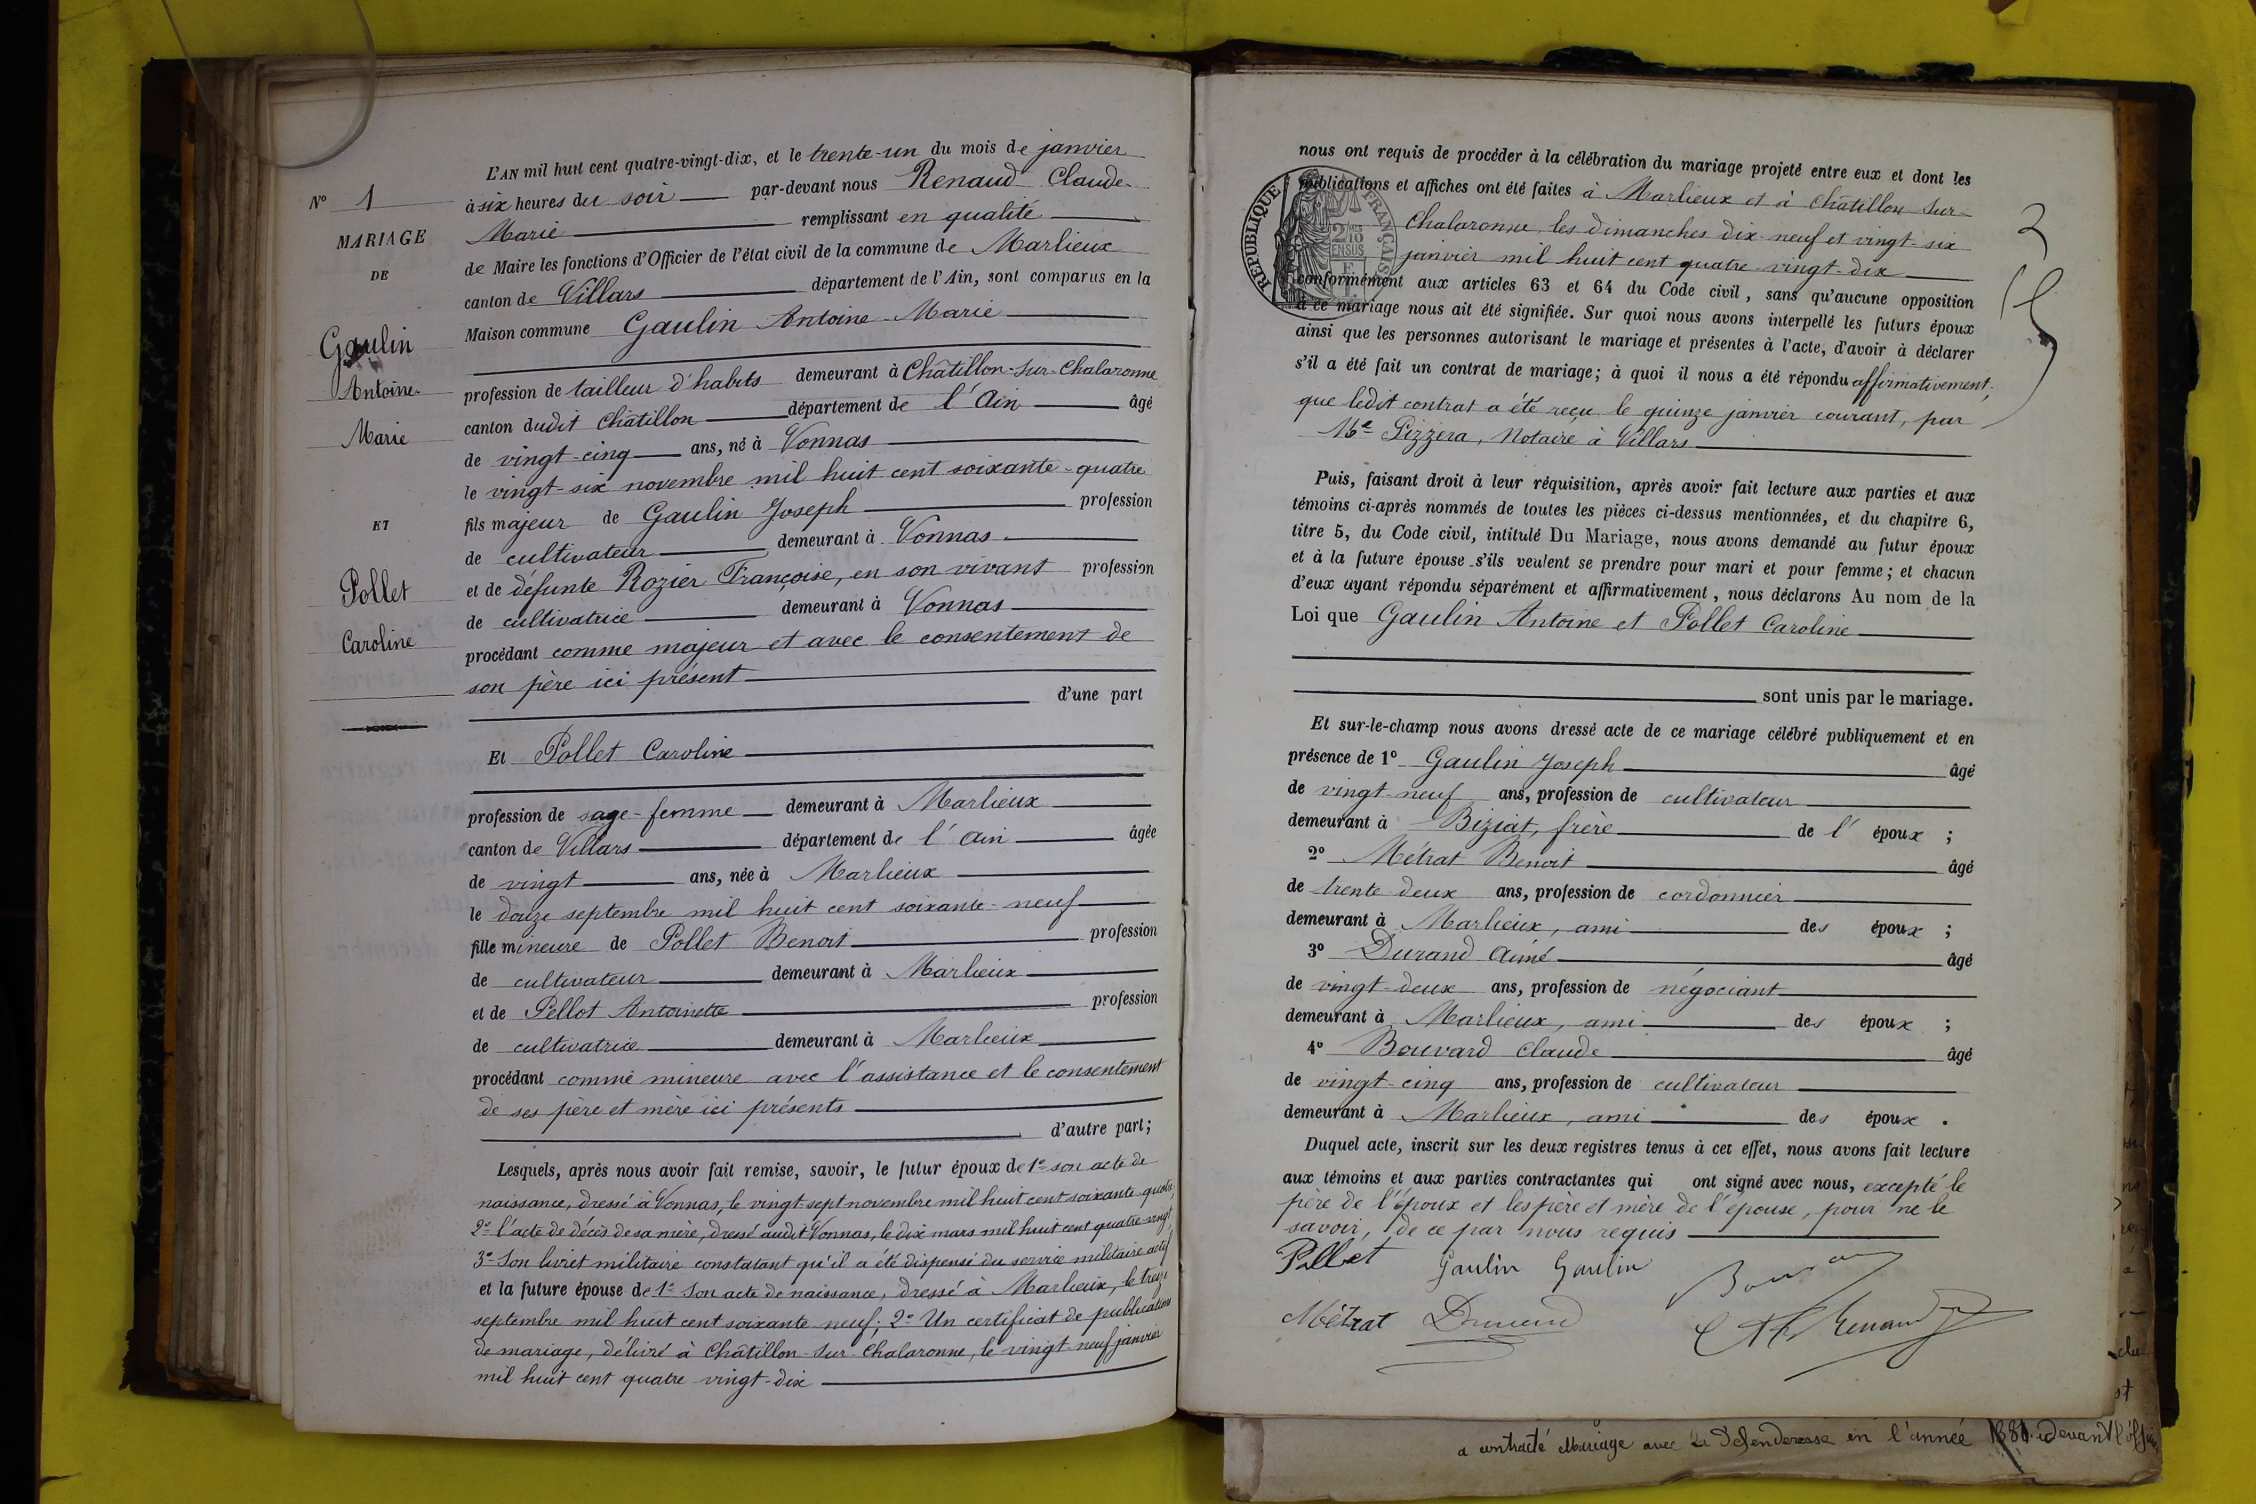 L'AN mil huit cent quatre-vingt-dix, et le trente-un du mois de janvier
N° 1
MARIAGE
DE
Gaulin
Antoine-
Marie
ET
Pollet
Caroline
à six heures du soir par-devant nous Renaud Claude-
Marie remplissant en qualité
de Maire les fonctions d'Officier de l'état civil de la commune de Marlieux
canton de Villars département de l'Ain, sont comparus en la
Maison commune Gaulin Antoine-Marie
profession de tailleur d'habits demeurant à Châtillon-sur-Chalaronne
canton dudit Châtillon département de l'Ain âgé
de vingt-cinq ans, né à Vonnas
le vingt-six novembre mil huit cent soixante-quatre
fils majeur de Gaulin Joseph profession
de cultivateur demeurant à Vonnas
et de défunte Rozier Françoise, en son vivant profession
de cultivatrice demeurant à Vonnas
procédant comme majeur et avec le consentement de
son père ici présent
d'une part
Et Pollet Caroline
profession de sage-femme demeurant à Marlieux
canton de Villars département de l'Ain âgée
de vingt ans, née à Marlieux
le douze septembre mil huit cent soixante-neuf
fille mineure de Pollet Benoit profession
de cultivateur demeurant à Marlieux
et de Pellot Antoinette profession
de cultivatrice demeurant à Marlieux
procédant comme mineure avec l'assistance et le consentement
de ses père et mère ici présents
d'autre part;
Lesquels, après nous avoir fait remise, savoir, le futur époux de 1° son acte de
naissance, dressé à Vonnas, le vingt-sept novembre mil huit cent soixante-quatre,
2° l'acte de décès de sa mère, dressé audit Vonnas, le dix mars mil huit cent quatre-vingt,
3° Son livret militaire constatant qu'il a été dispensé du service militaire actif
et la future épouse de 1° Son acte de naissance, dressé à Marlieux, le treize
septembre mil huit cent soixante neuf; 2° Un certificat de publications
de mariage, délivré à Châtillon-sur-Chalaronne, le vingt-neuf janvier
mil huit cent quatre-vingt-dix
nous ont requis de procéder à la célébration du mariage projeté entre eux et dont les
publications et affiches ont été faites à Marlieux et à Châtillon-sur-
Chalaronne, les dimanches dix-neuf et vingt-six
janvier mil huit cent quatre-vingt-dix
RÉPUBLIQUE FRANÇAISE
conformément aux articles 63 et 64 du Code civil, sans qu'aucune opposition
à ce mariage nous ait été signifiée. Sur quoi nous avons interpellé les futurs époux
ainsi que les personnes autorisant le mariage et présentes à l'acte, d'avoir à déclarer
s'il a été fait un contrat de mariage; à quoi il nous a été répondu affirmativement;
que ledit contrat a été reçu le quinze janvier courant, par
Me Pizzera, Notaire à Villars
Puis, faisant droit à leur réquisition, après avoir fait lecture aux parties et aux
témoins ci-après nommés de toutes les pièces ci-dessus mentionnées, et du chapitre 6,
titre 5, du Code civil, intitulé Du Mariage, nous avons demandé au futur époux
et à la future épouse s'ils veulent se prendre pour mari et pour femme; et chacun
d'eux ayant répondu séparément et affirmativement, nous déclarons Au nom de la
Loi que Gaulin Antoine et Pollet Caroline
sont unis par le mariage.
Et sur-le-champ nous avons dressé acte de ce mariage célébré publiquement et en
présence de 1° Gaulin Joseph âgé
de vingt-neuf ans, profession de cultivateur
demeurant à Biziat, frère de l'époux;
2° Métrat Benoit âgé
de trente deux ans, profession de cordonnier
demeurant à Marlieux, ami des époux;
3° Durand Aimé âgé
de vingt-deux ans, profession de négociant
demeurant à Marlieux, ami des époux;
4° Bouvard Claude âgé
de vingt-cinq ans, profession de cultivateur
demeurant à Marlieux, ami des époux.
Duquel acte, inscrit sur les deux registres tenus à cet effet, nous avons fait lecture
aux témoins et aux parties contractantes qui ont signé avec nous, excepté le
père de l'époux et les père et mère de l'épouse, pour ne le
savoir, de ce par nous requis
Pollet Gaulin Gaulin
Métrat Durand Renaud
a contracté Mariage avec la défenderesse en l'année 1881 devant l'offi